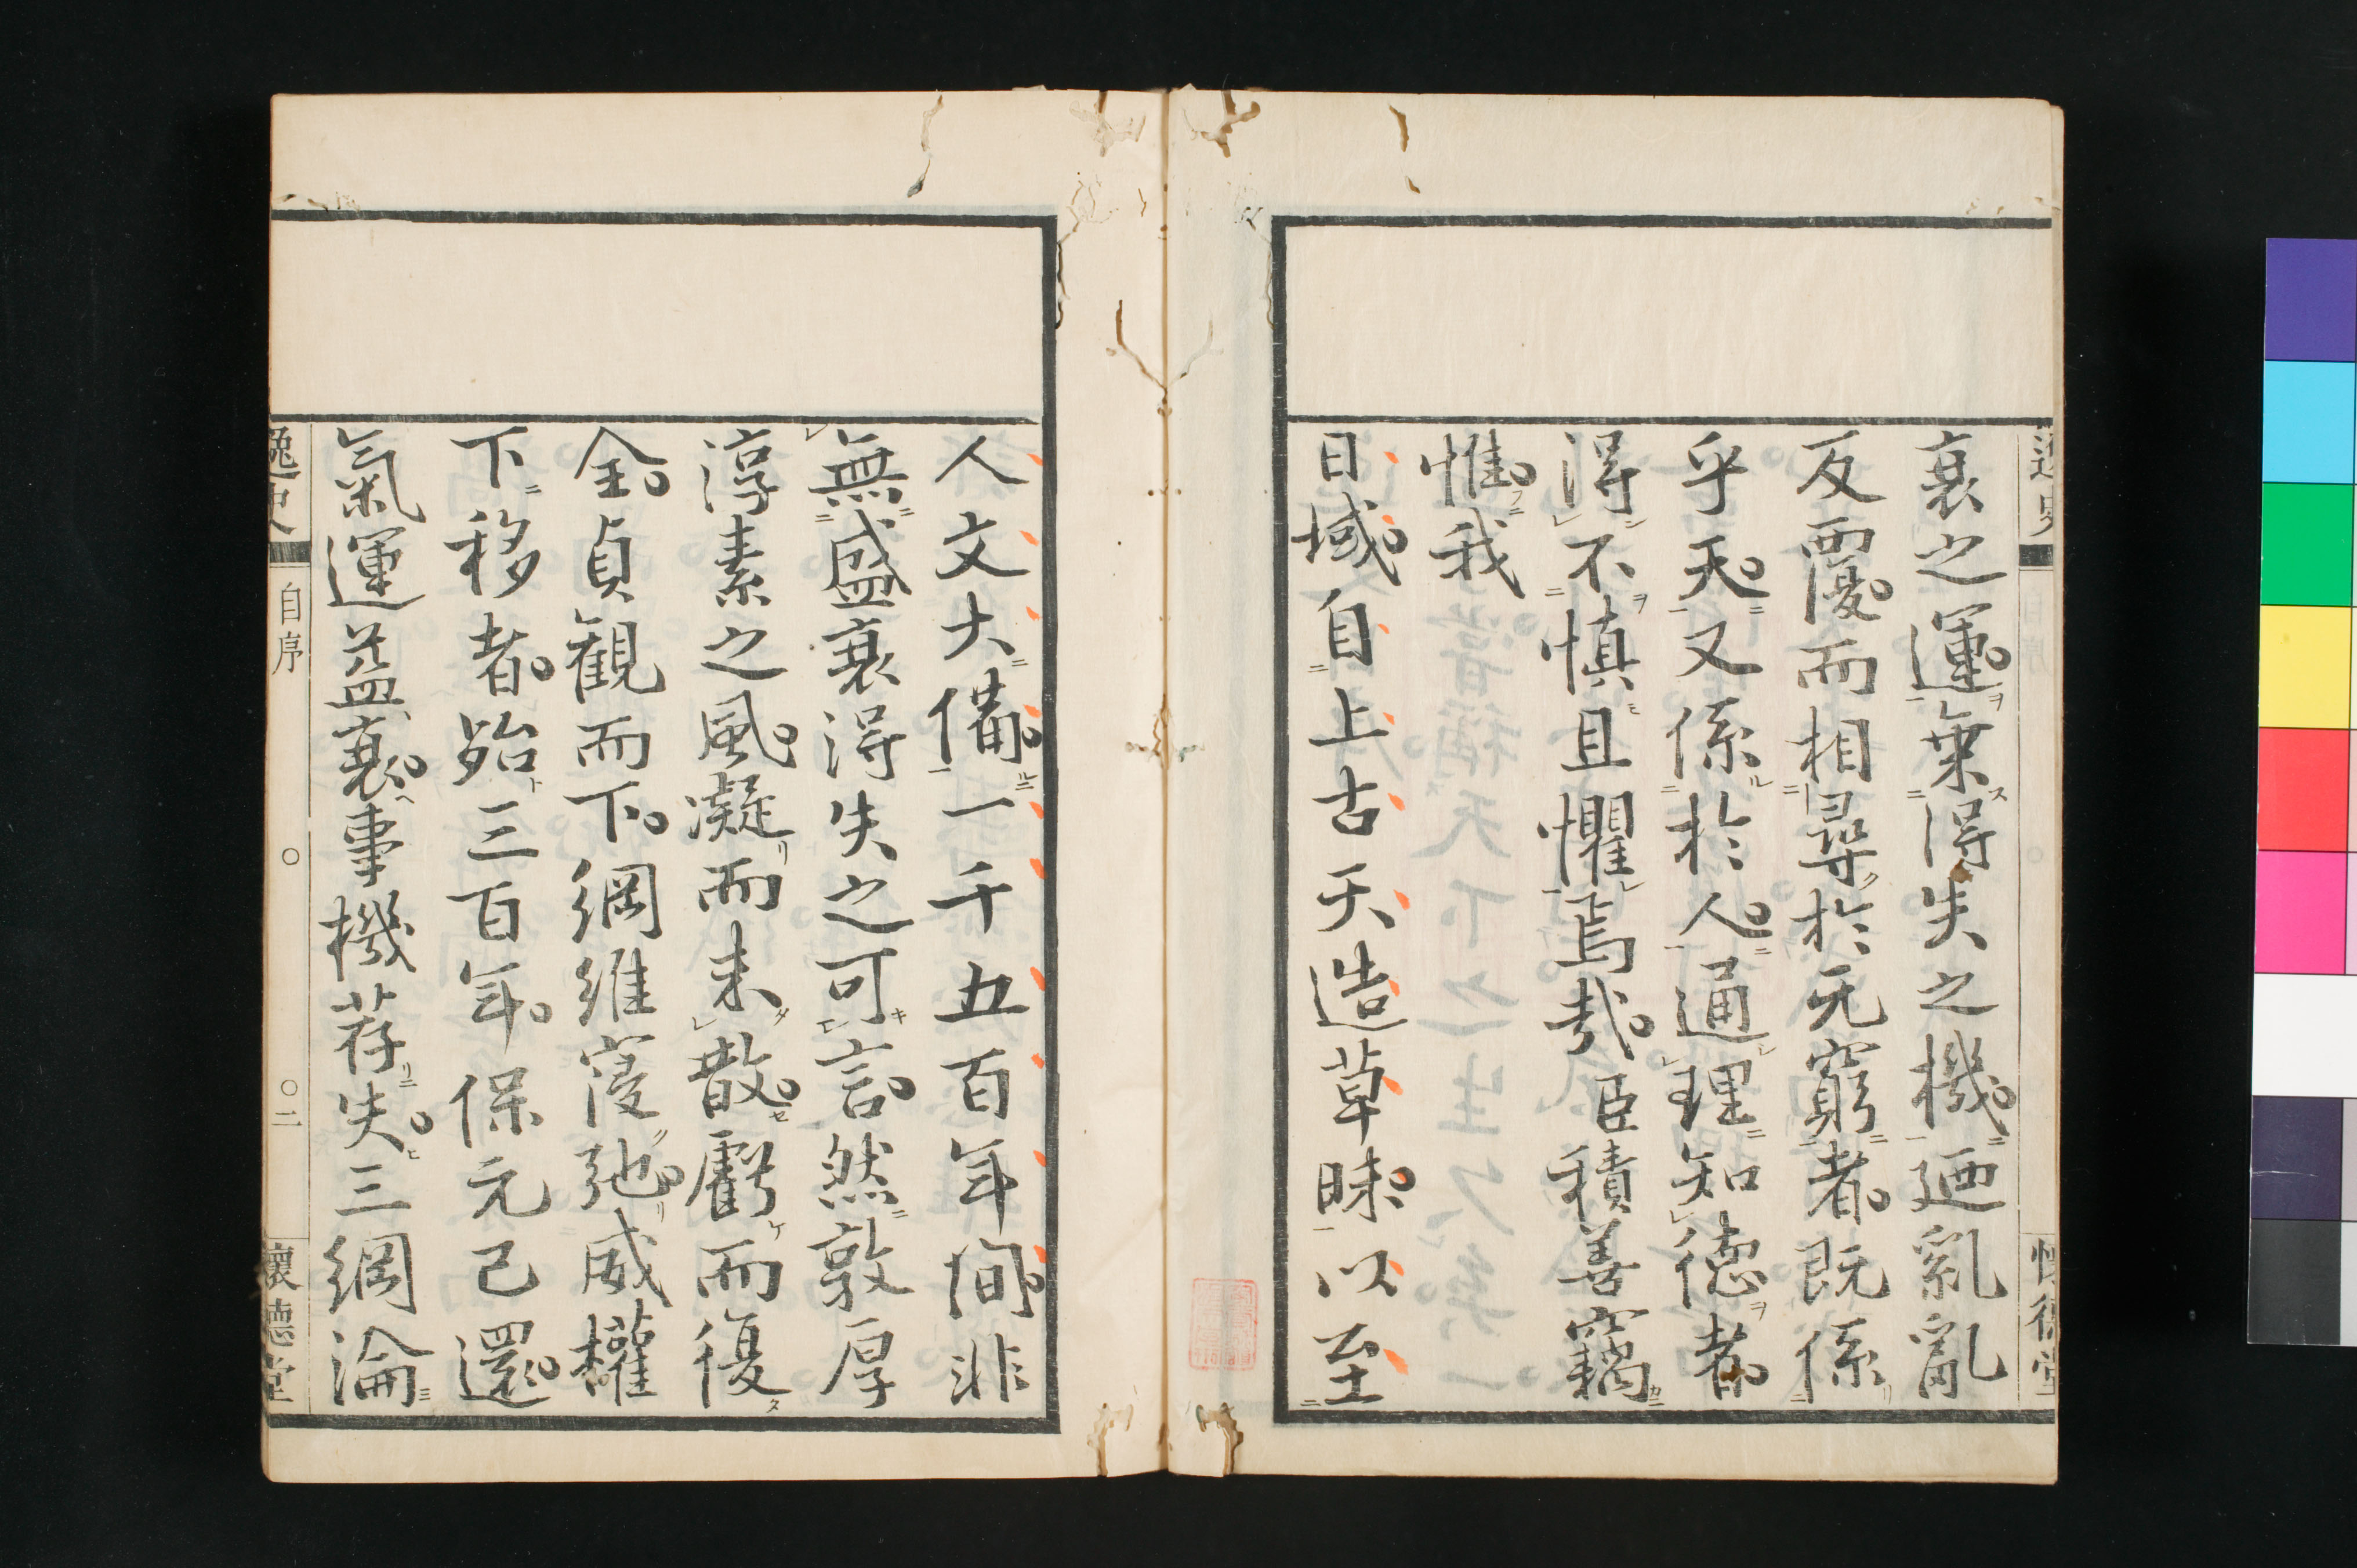 衰之運。棄得失之機。廼亂亂
反覆。而相尋於无窮者。既係
乎天。又係於人。通理知德者。
得不慎且懼焉哉。臣積善竊
惟。我
日域。自上古天造草昧。以至
人文大備。一千五百年間。非
無盛衰得失之可言。然敦厚
淳素之風。凝而未散。虧而復
全。貞観而下。綱維寖弛。威權
下移者。殆三百年。保元已還。
氣運益衰。事機荐失。三綱淪
逸史
自序
〇
〇二
懷德堂